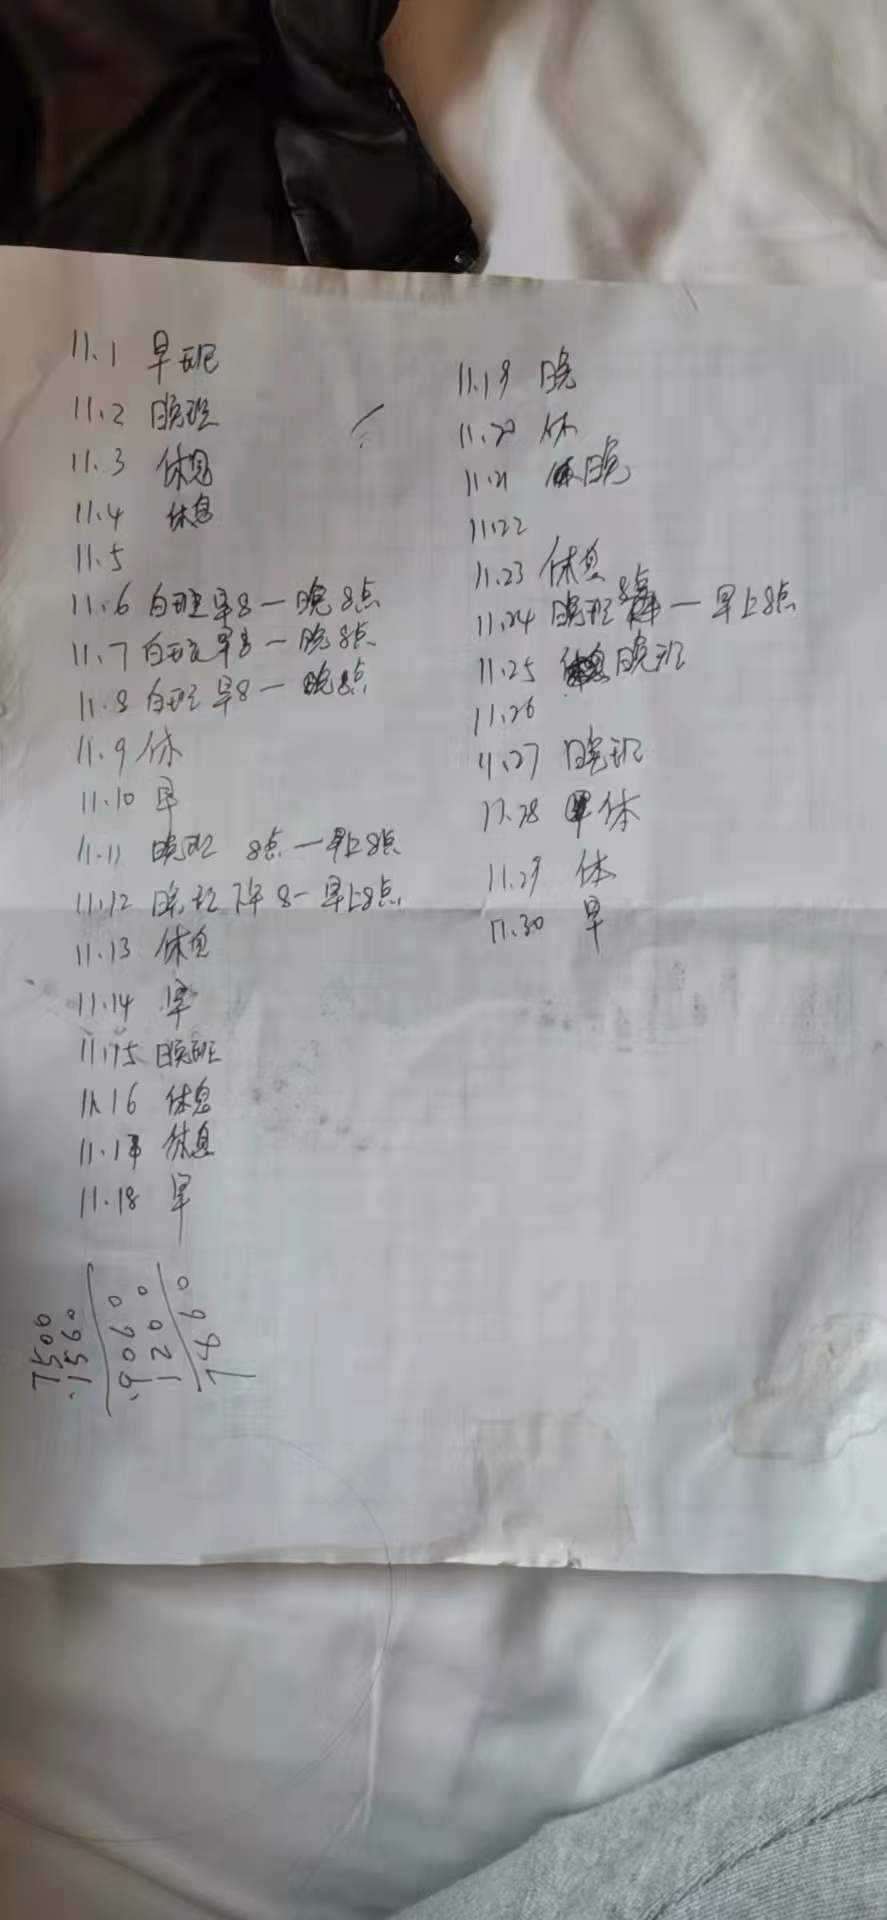 11.1 早班
11.2 晚班
11.3 休息
11.4 休息
11.5
11.6 白班早8一晚8点
11.7 白班早8一晚8点
11.8 白班早8一晚8点
11.9 休
11.10 早
11.11 晚班 8点一早上8点
11.12 晚班下午8-早上8点
11.13 休息
11.14 早
11.15 晚班
11.16 休息
11.17 休息
11.18 早
11.19 晚
11.20 休
11.21 晚
11.22
11.23 休息
11.24 晚班8点一早上8点
11.25 晚班
11.26
11.27 晚班
11.28 休
11.29 休
11.30 早
7500
1560